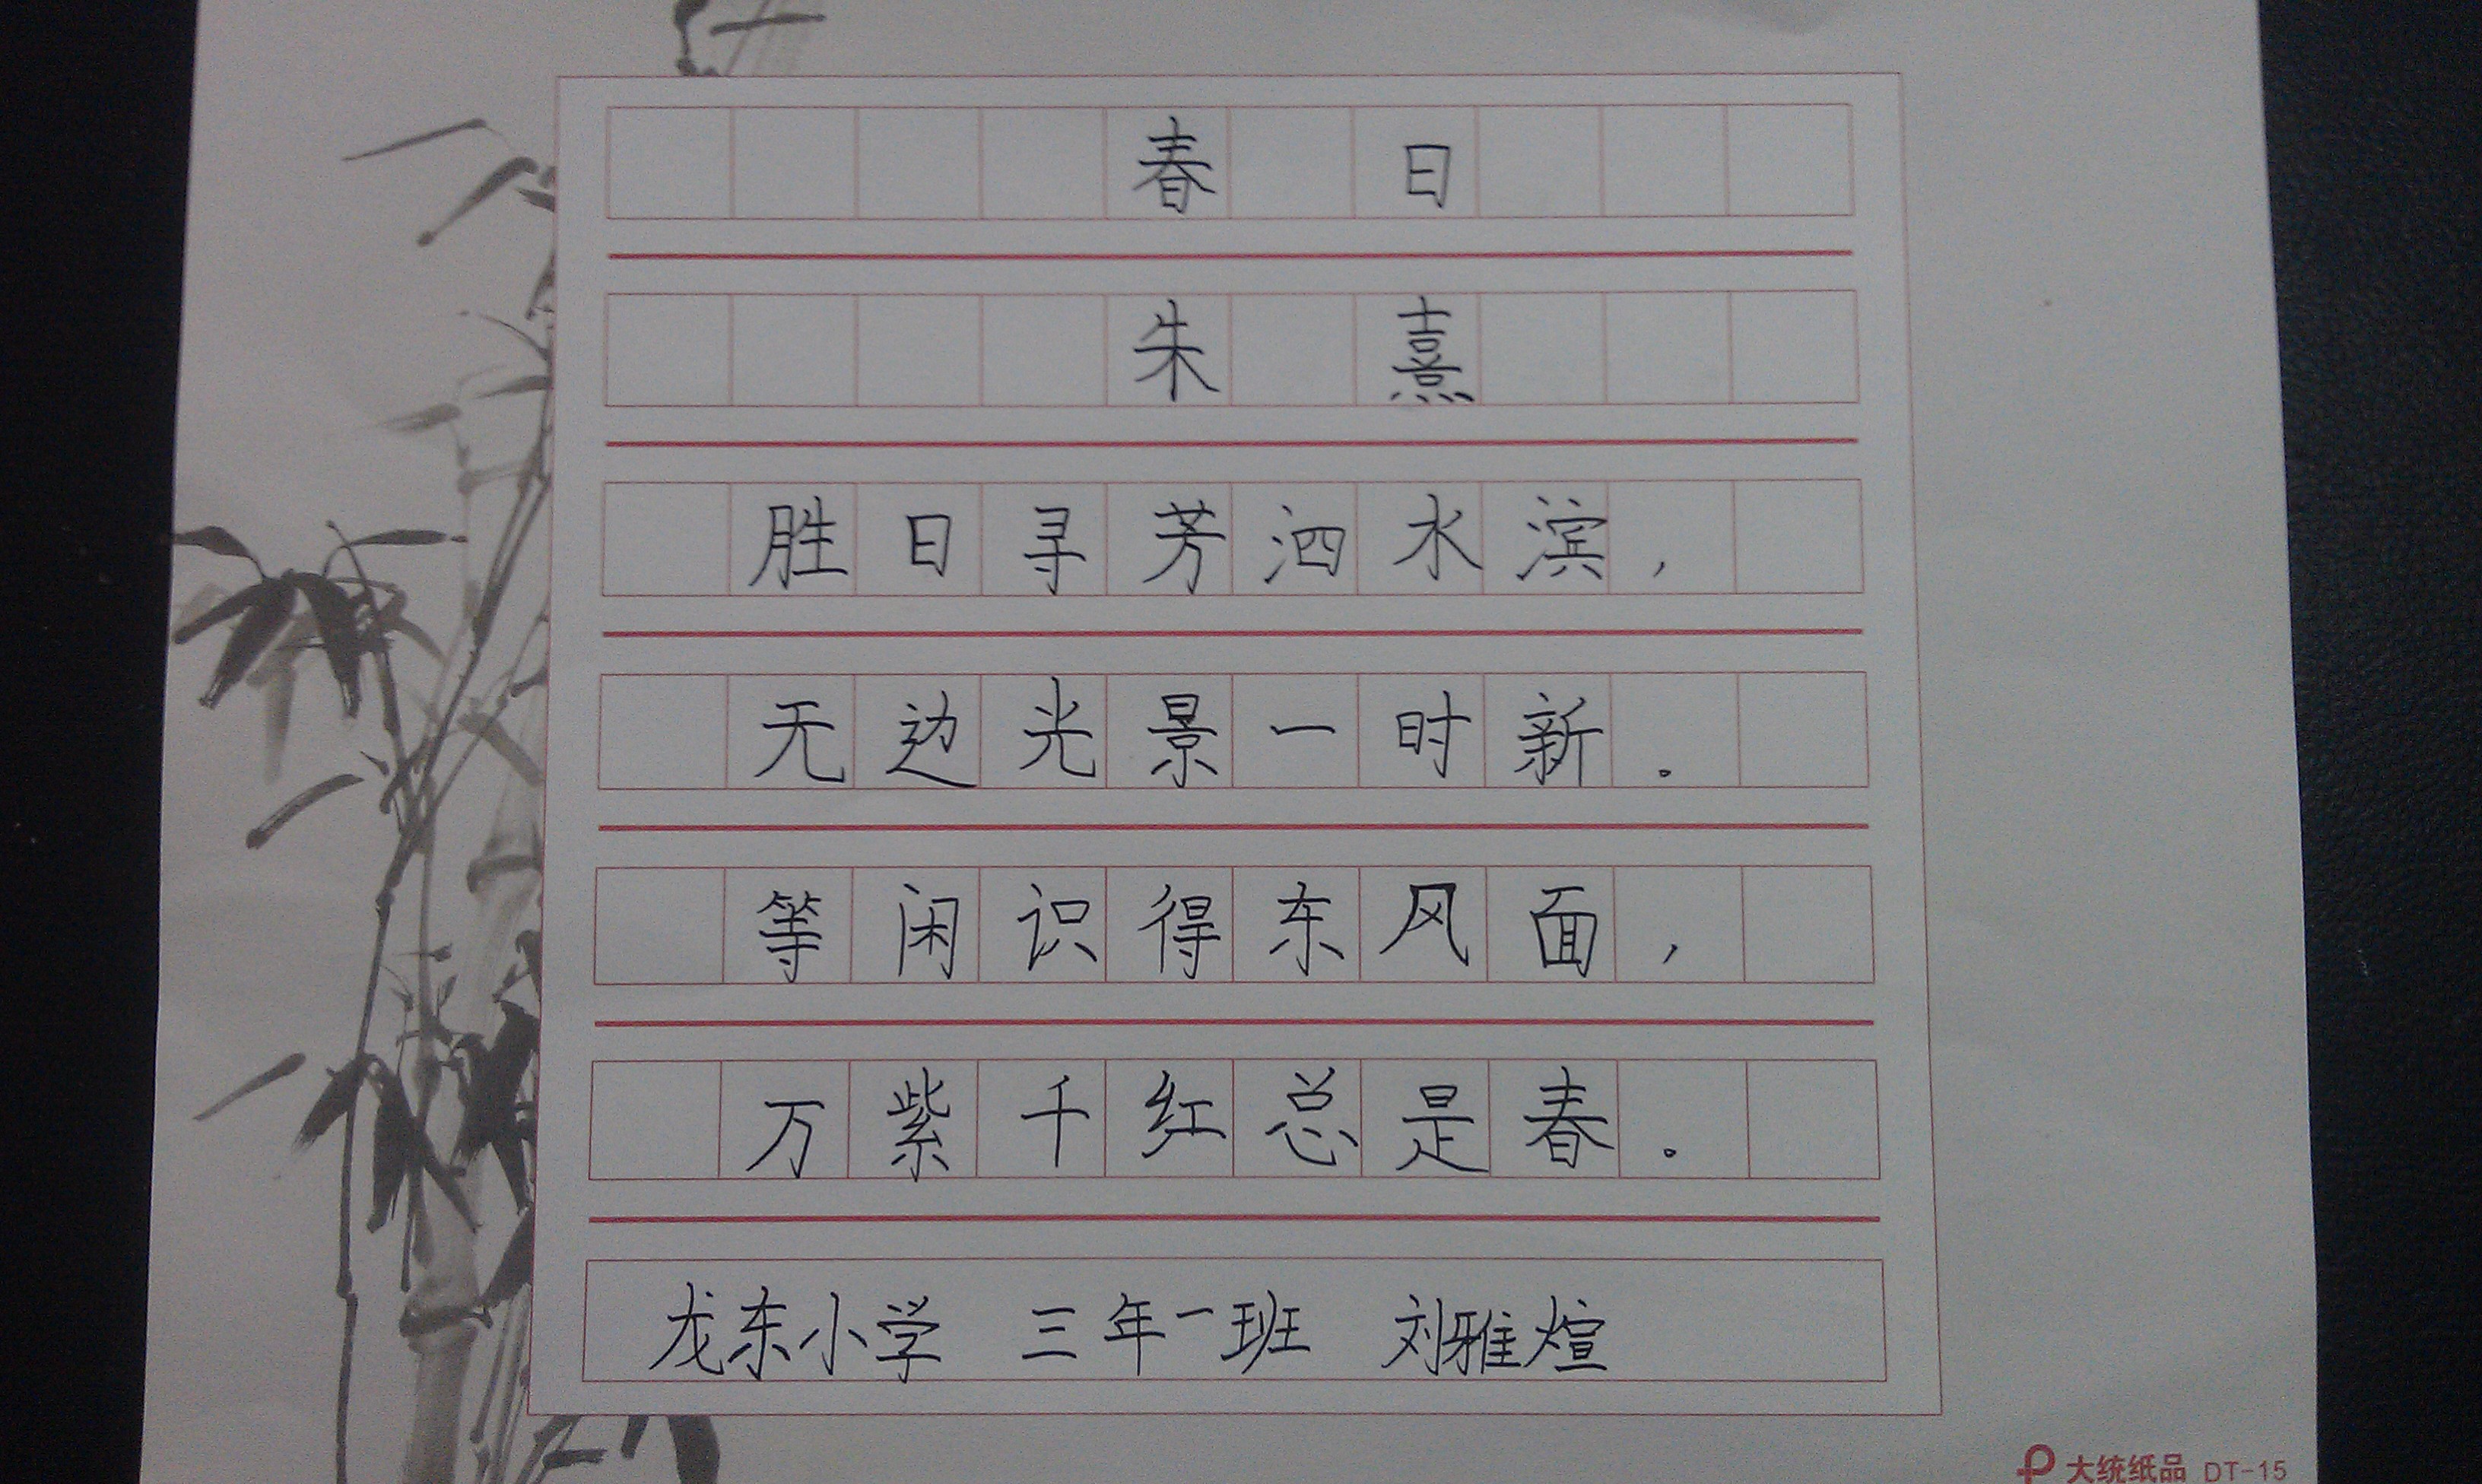 春日
朱熹
胜日寻芳泗水滨，
无边光景一时新。
等闲识得东风面，
万紫千红总是春。
龙东小学 三年一班 刘雅煊
大统纸品 DT-15